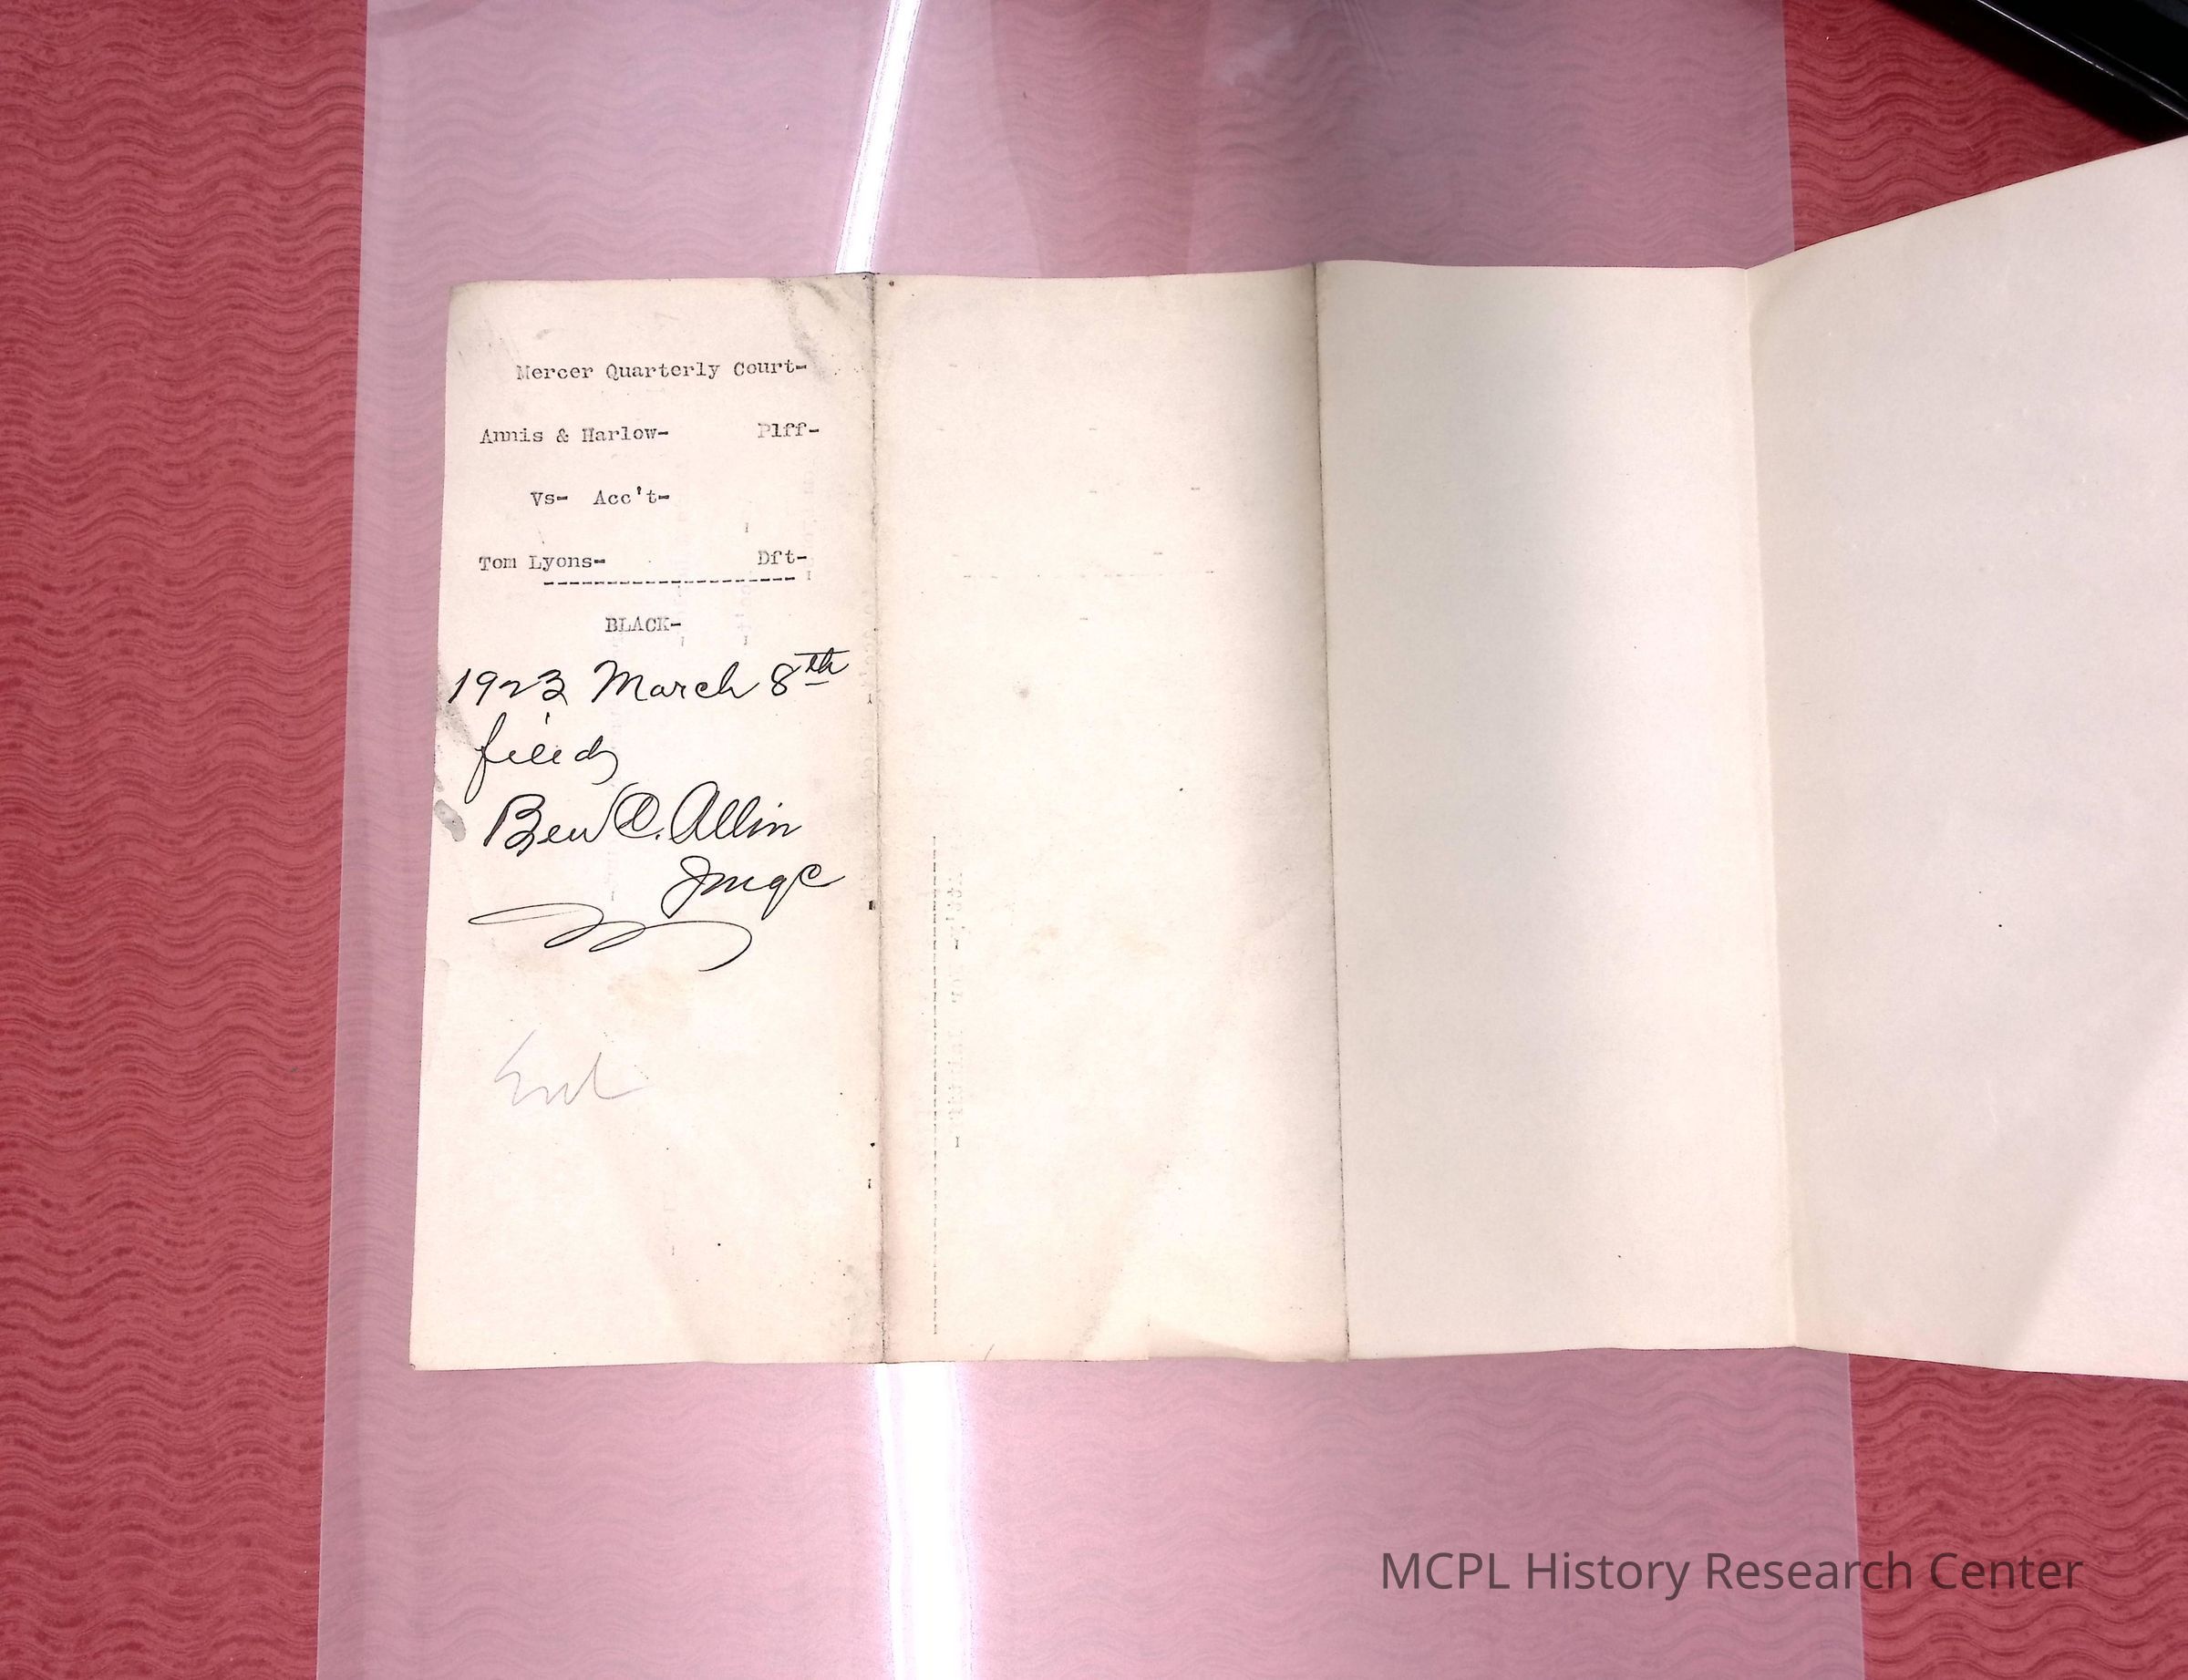 Mercer Quarterly Court-
Annis & Harlow- Plff-
Vs- Acc't-
Tom Lyons- Dft-
--------------------
BLACK-
1923 March 8th
filed
Ben C. Allin
Judge
End
MCPL History Research Center